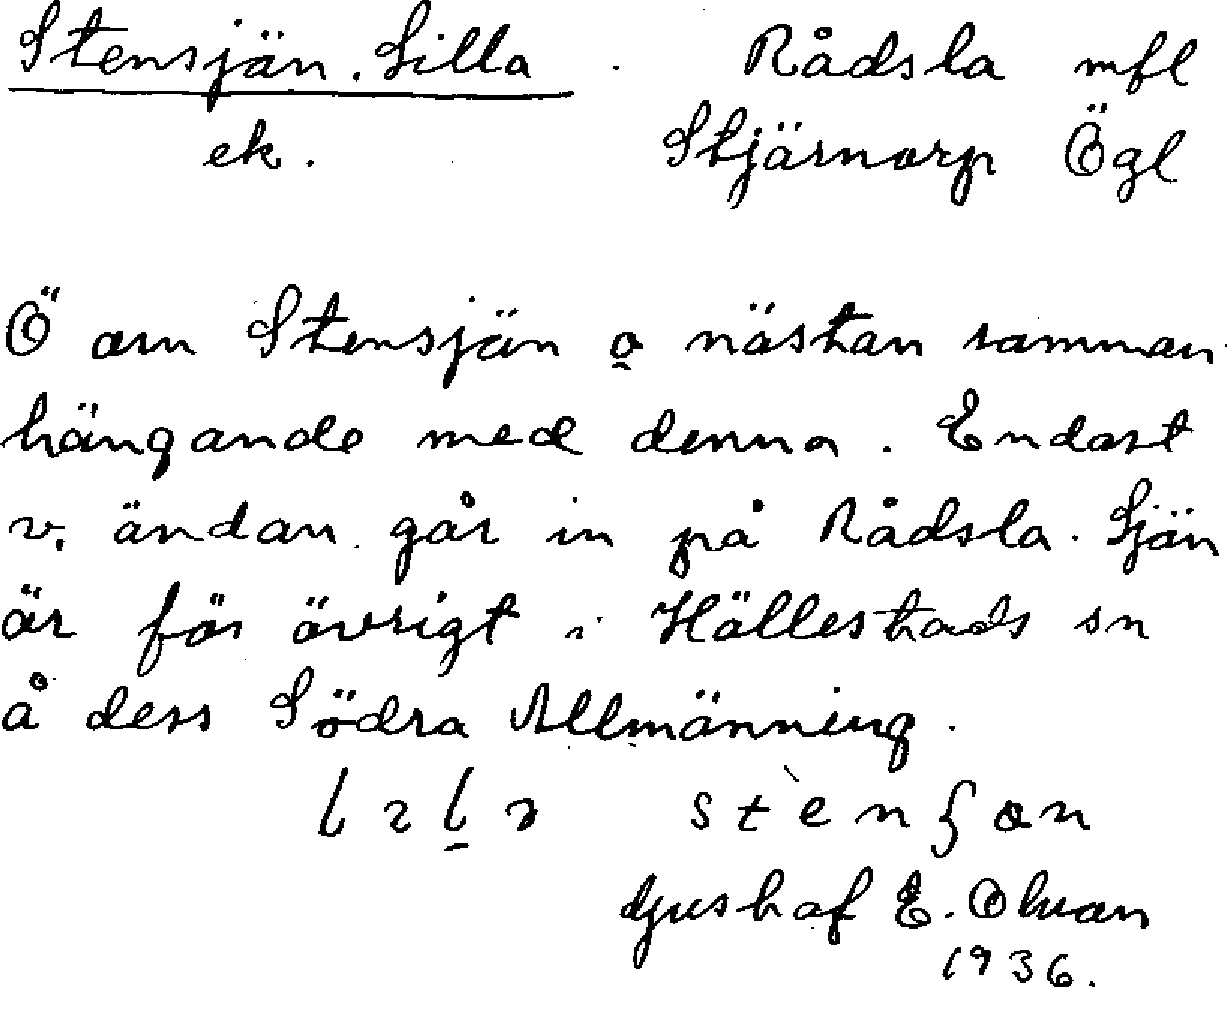 Stensjön, Lilla Rådsla mfl
ek. Stjärnorp Ögl
Ö om Stensjön o nästan samman-
hängande med denna. Endast
v. ändan går in på Rådsla. Sjön
är för övrigt i Hällestads sn
å dess Södra Allmänning.
stènʃon
Gustaf E. Olsson
1936.